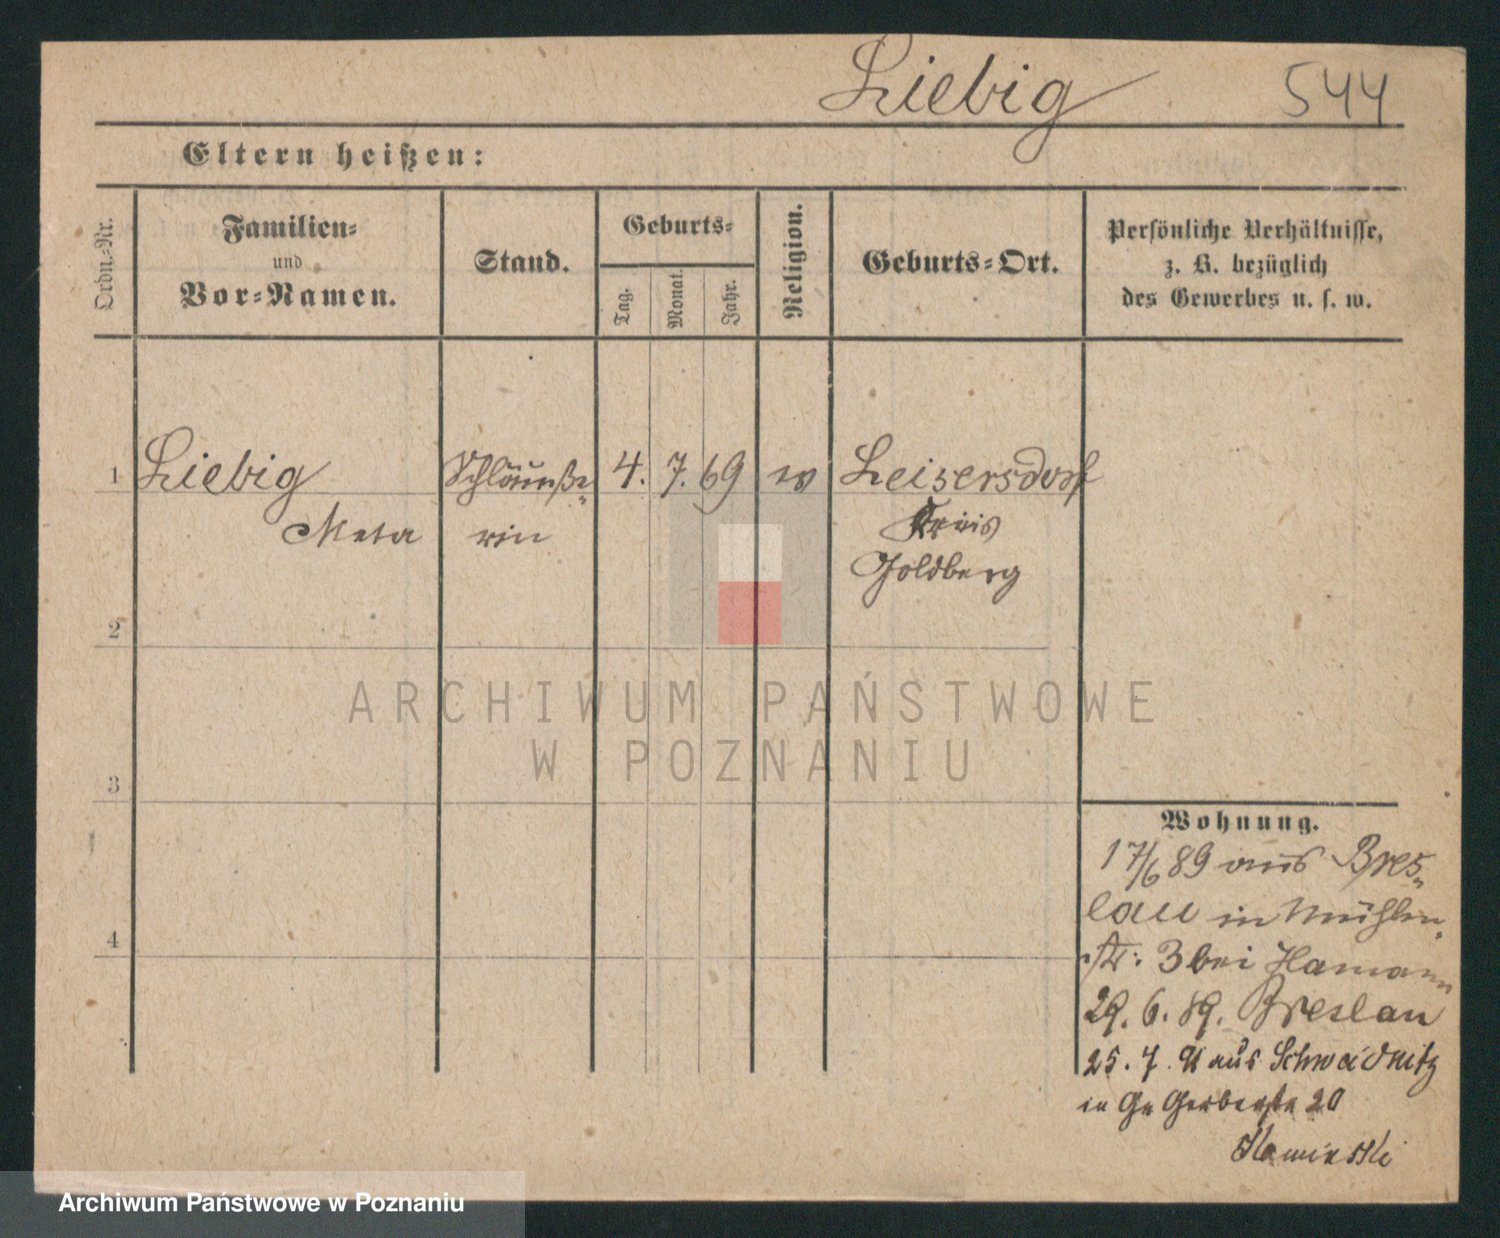 Liebig 544
Eltern heißen:
Ordn.-Nr.
Familien-
und
Vor-Namen.
Stand.
Geburts-
Tag.
Monat.
Jahr.
Religion.
Geburts-Ort.
Persönliche Verhältnisse,
z. B. bezüglich
des Gewerbes u. s. w.
1 Liebig 4. 7. 69 Leisersdorf
Meta rin Kreis
Goldberg
2
3
4
Wohnung.
17/6 89 aus Bres-
lau in Mühlen-
str. 3 bei Hamann
29. 6. 89. Breslau
25. 7. 91 aus Schweidnitz
in Gr Gerberstr 20
Kaminski
ARCHIWUM PAŃSTWOWE
W POZNANIU
Archiwum Państwowe w Poznaniu